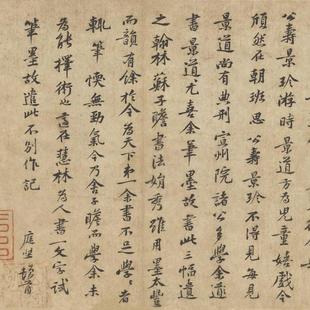 公壽景珍游時景道方為兒童嬉戲今
頎然在朝班思公壽景珍不得見每見
景道尚有典刑宣州院諸公多學余
書景道尤喜余筆墨故書此三幅遺
之翰林蘇子瞻書法娟秀雖用墨太豐
而韻有餘於今為天下第一余書不足學學者
輒筆愞無勁氣今乃舍子瞻而學余未
為能擇術也適在慧林為人書一文字試
筆墨故遣此不別作記
庭堅頓首